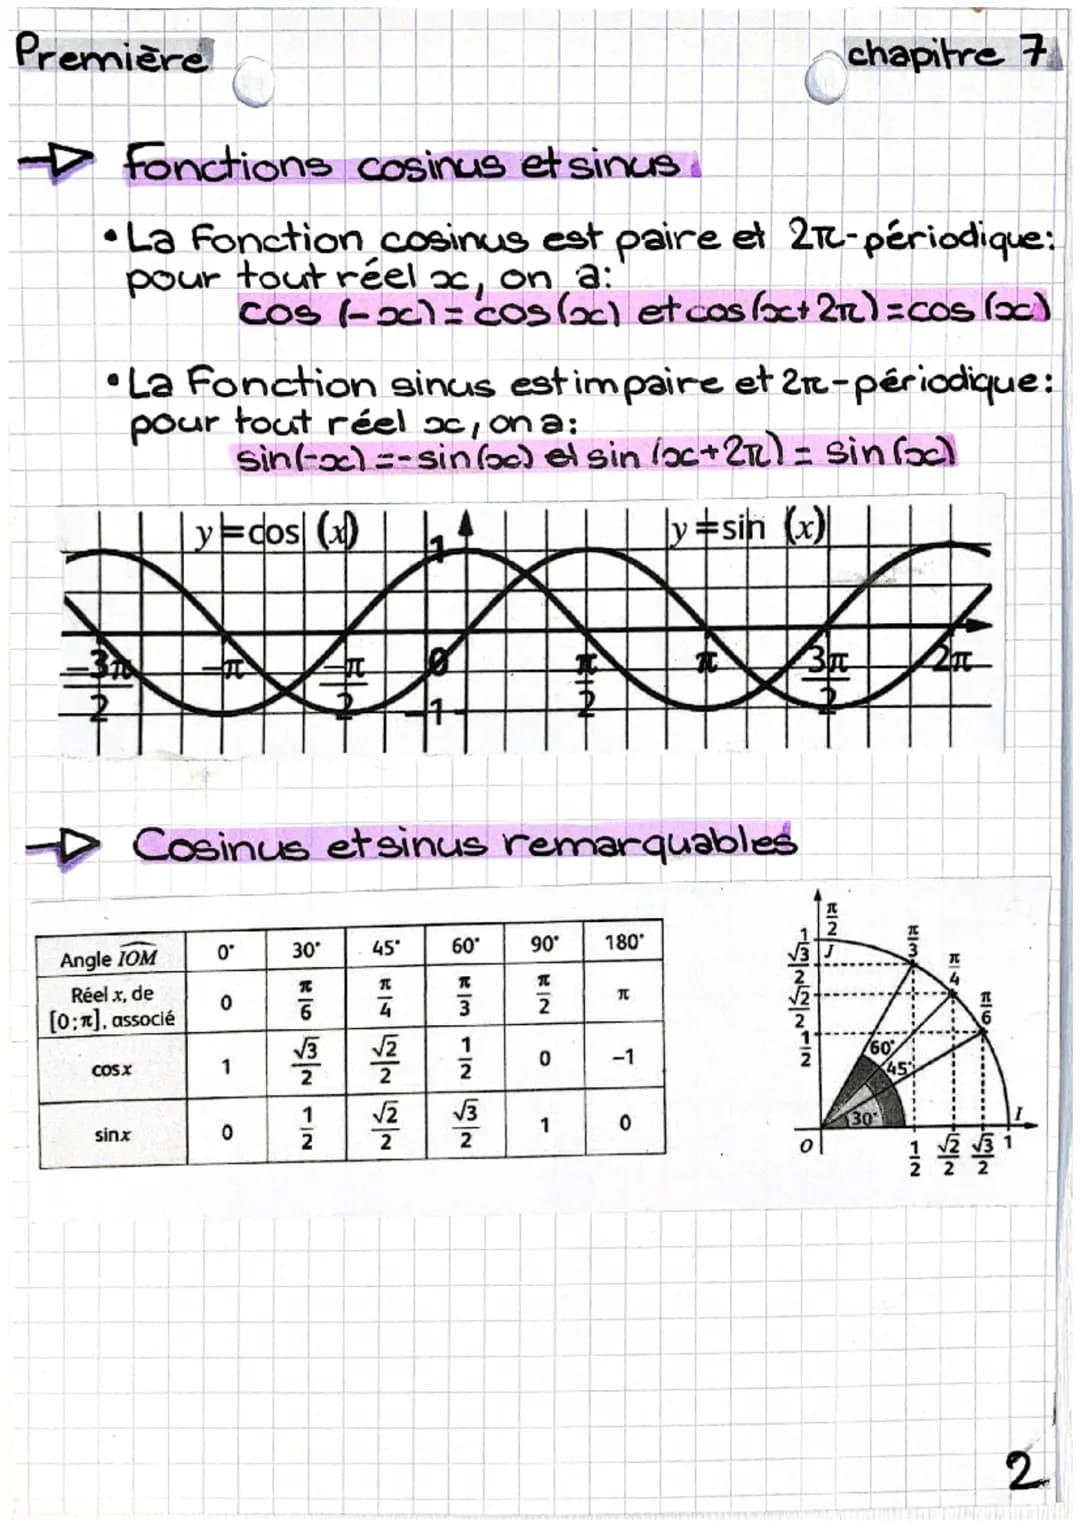 Première
chapitre 7
Fonctions cosinus et sinus
• La Fonction cosinus est paire et 2π-périodique:
pour tout réel x, on a:
cos (-x) = cos(x) et cos(x+2π)=cos (x)
• La Fonction sinus est impaire et 2π-périodique:
pour tout réel x, on a:
sin(-x) =-sin(x) et sin (x+2π) = sin(x)
y=cos (x)
y=sin (x)
1
-3π/2 -π -π/2 0 π/2 π 3π/2 2π
-1
Cosinus et sinus remarquables
Angle IOM 0° 30° 45° 60° 90° 180°
Réel x, de [0;π], associé 0 π/6 π/4 π/3 π/2 π
cosx 1 √3/2 √2/2 1/2 0 -1
sinx 0 1/2 √2/2 √3/2 1 0
π/2
1 J
π/3
√3/2
π/4
√2/2
π/6
1/2
60°
45°
30°
I
O 1/2 √2/2 √3/2 1
2